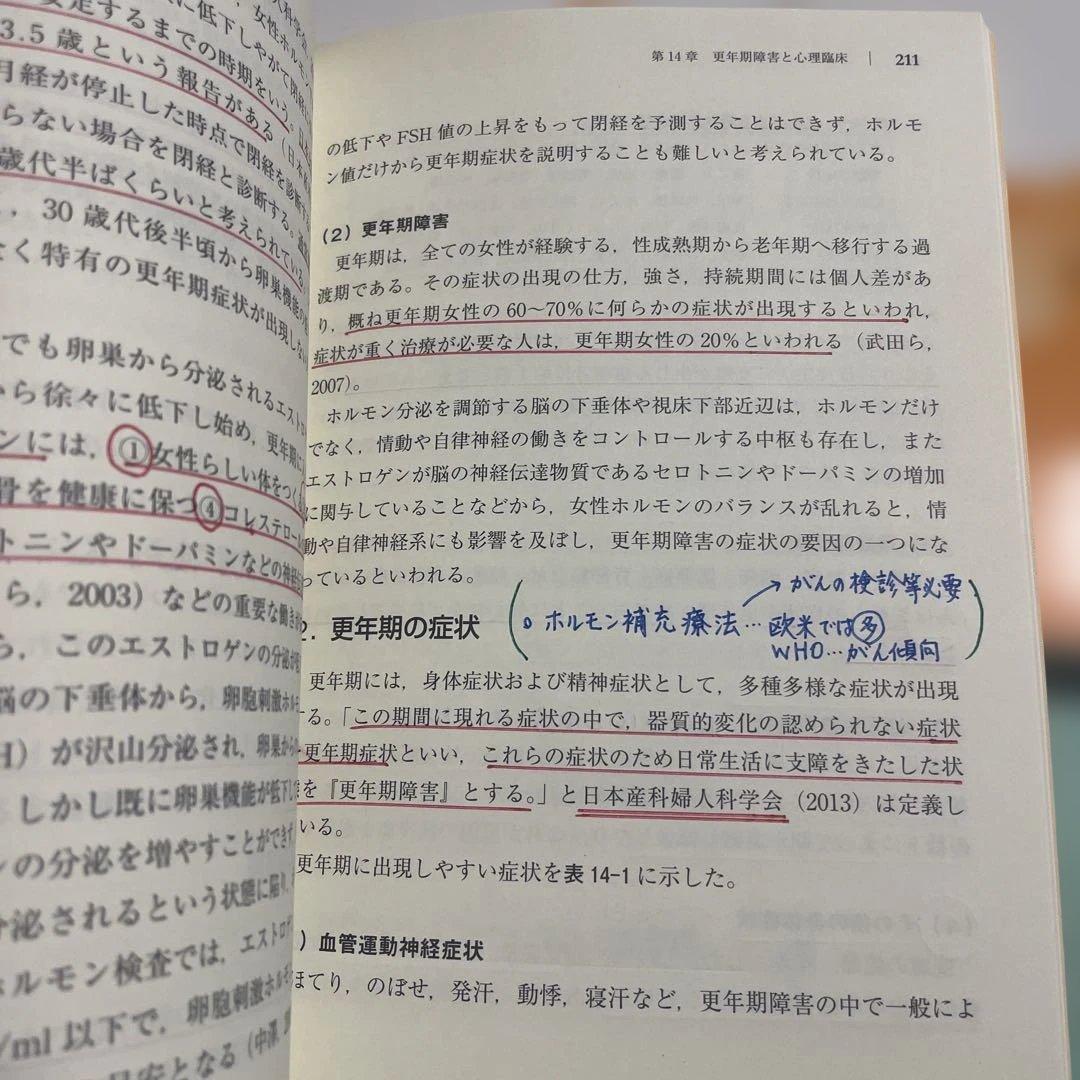 に低下しやがて閉経
安定するまでの時期をいう。
3.5歳という報告がある（日本
月経が停止した時点で閉経を診断す
らない場合を閉経と診断する。
歳代半ばくらいと考えられている
，30歳代後半頃から卵巣機能の
く特有の更年期症状が出現しない
でも卵巣から分泌されるエストロ
から徐々に低下し始め，更年期に
ンには，①女性らしい体をつくる
骨を健康に保つ④コレステロール
トニンやドーパミンなどの神経伝
ら，2003）などの重要な働き
ら，このエストロゲンの分泌が
脳の下垂体から，卵胞刺激ホルモ
H）が沢山分泌され，卵巣から
しかし既に卵巣機能が低下して
ンの分泌を増やすことができず
分泌されるという状態に陥り，
ホルモン検査では，エストロゲ
/ml以下で，卵胞刺激ホルモ
目安となる（中澤
第14章　更年期障害と心理臨床　｜　211
の低下やFSH値の上昇をもって閉経を予測することはできず，ホルモ
ン値だけから更年期症状を説明することも難しいと考えられている。
（2）更年期障害
更年期は，全ての女性が経験する，性成熟期から老年期へ移行する過
渡期である。その症状の出現の仕方，強さ，持続期間には個人差があ
り，概ね更年期女性の60～70%に何らかの症状が出現するといわれ，
症状が重く治療が必要な人は，更年期女性の20%といわれる（武田ら，
2007）。
ホルモン分泌を調節する脳の下垂体や視床下部近辺は，ホルモンだけ
でなく，情動や自律神経の働きをコントロールする中枢も存在し，また
エストロゲンが脳の神経伝達物質であるセロトニンやドーパミンの増加
に関与していることなどから，女性ホルモンのバランスが乱れると，情
動や自律神経系にも影響を及ぼし，更年期障害の症状の要因の一つにな
っているといわれる。
→がんの検診等必要
（○ ホルモン補充療法…欧米では多
WHO…がん傾向）
2. 更年期の症状
更年期には，身体症状および精神症状として，多種多様な症状が出現
する。「この期間に現れる症状の中で，器質的変化の認められない症状
更年期症状といい，これらの症状のため日常生活に支障をきたした状
を『更年期障害』とする。」と日本産科婦人科学会（2013）は定義し
いる。
更年期に出現しやすい症状を表14-1に示した。
）血管運動神経症状
ほてり，のぼせ，発汗，動悸，寝汗など，更年期障害の中で一般によ